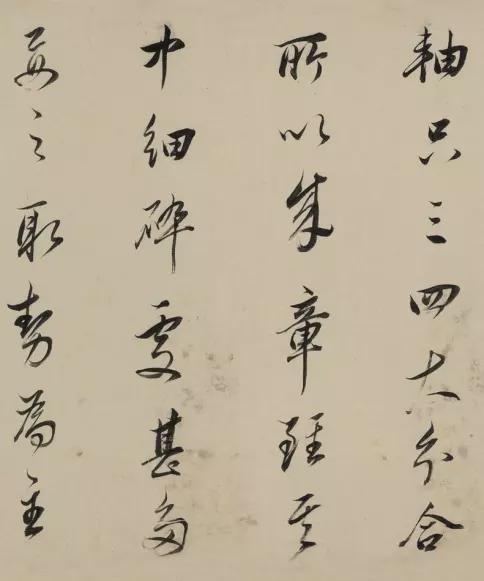 軸只三四大分合
所以成章雖其
中細碎處甚多
要之取勢為主